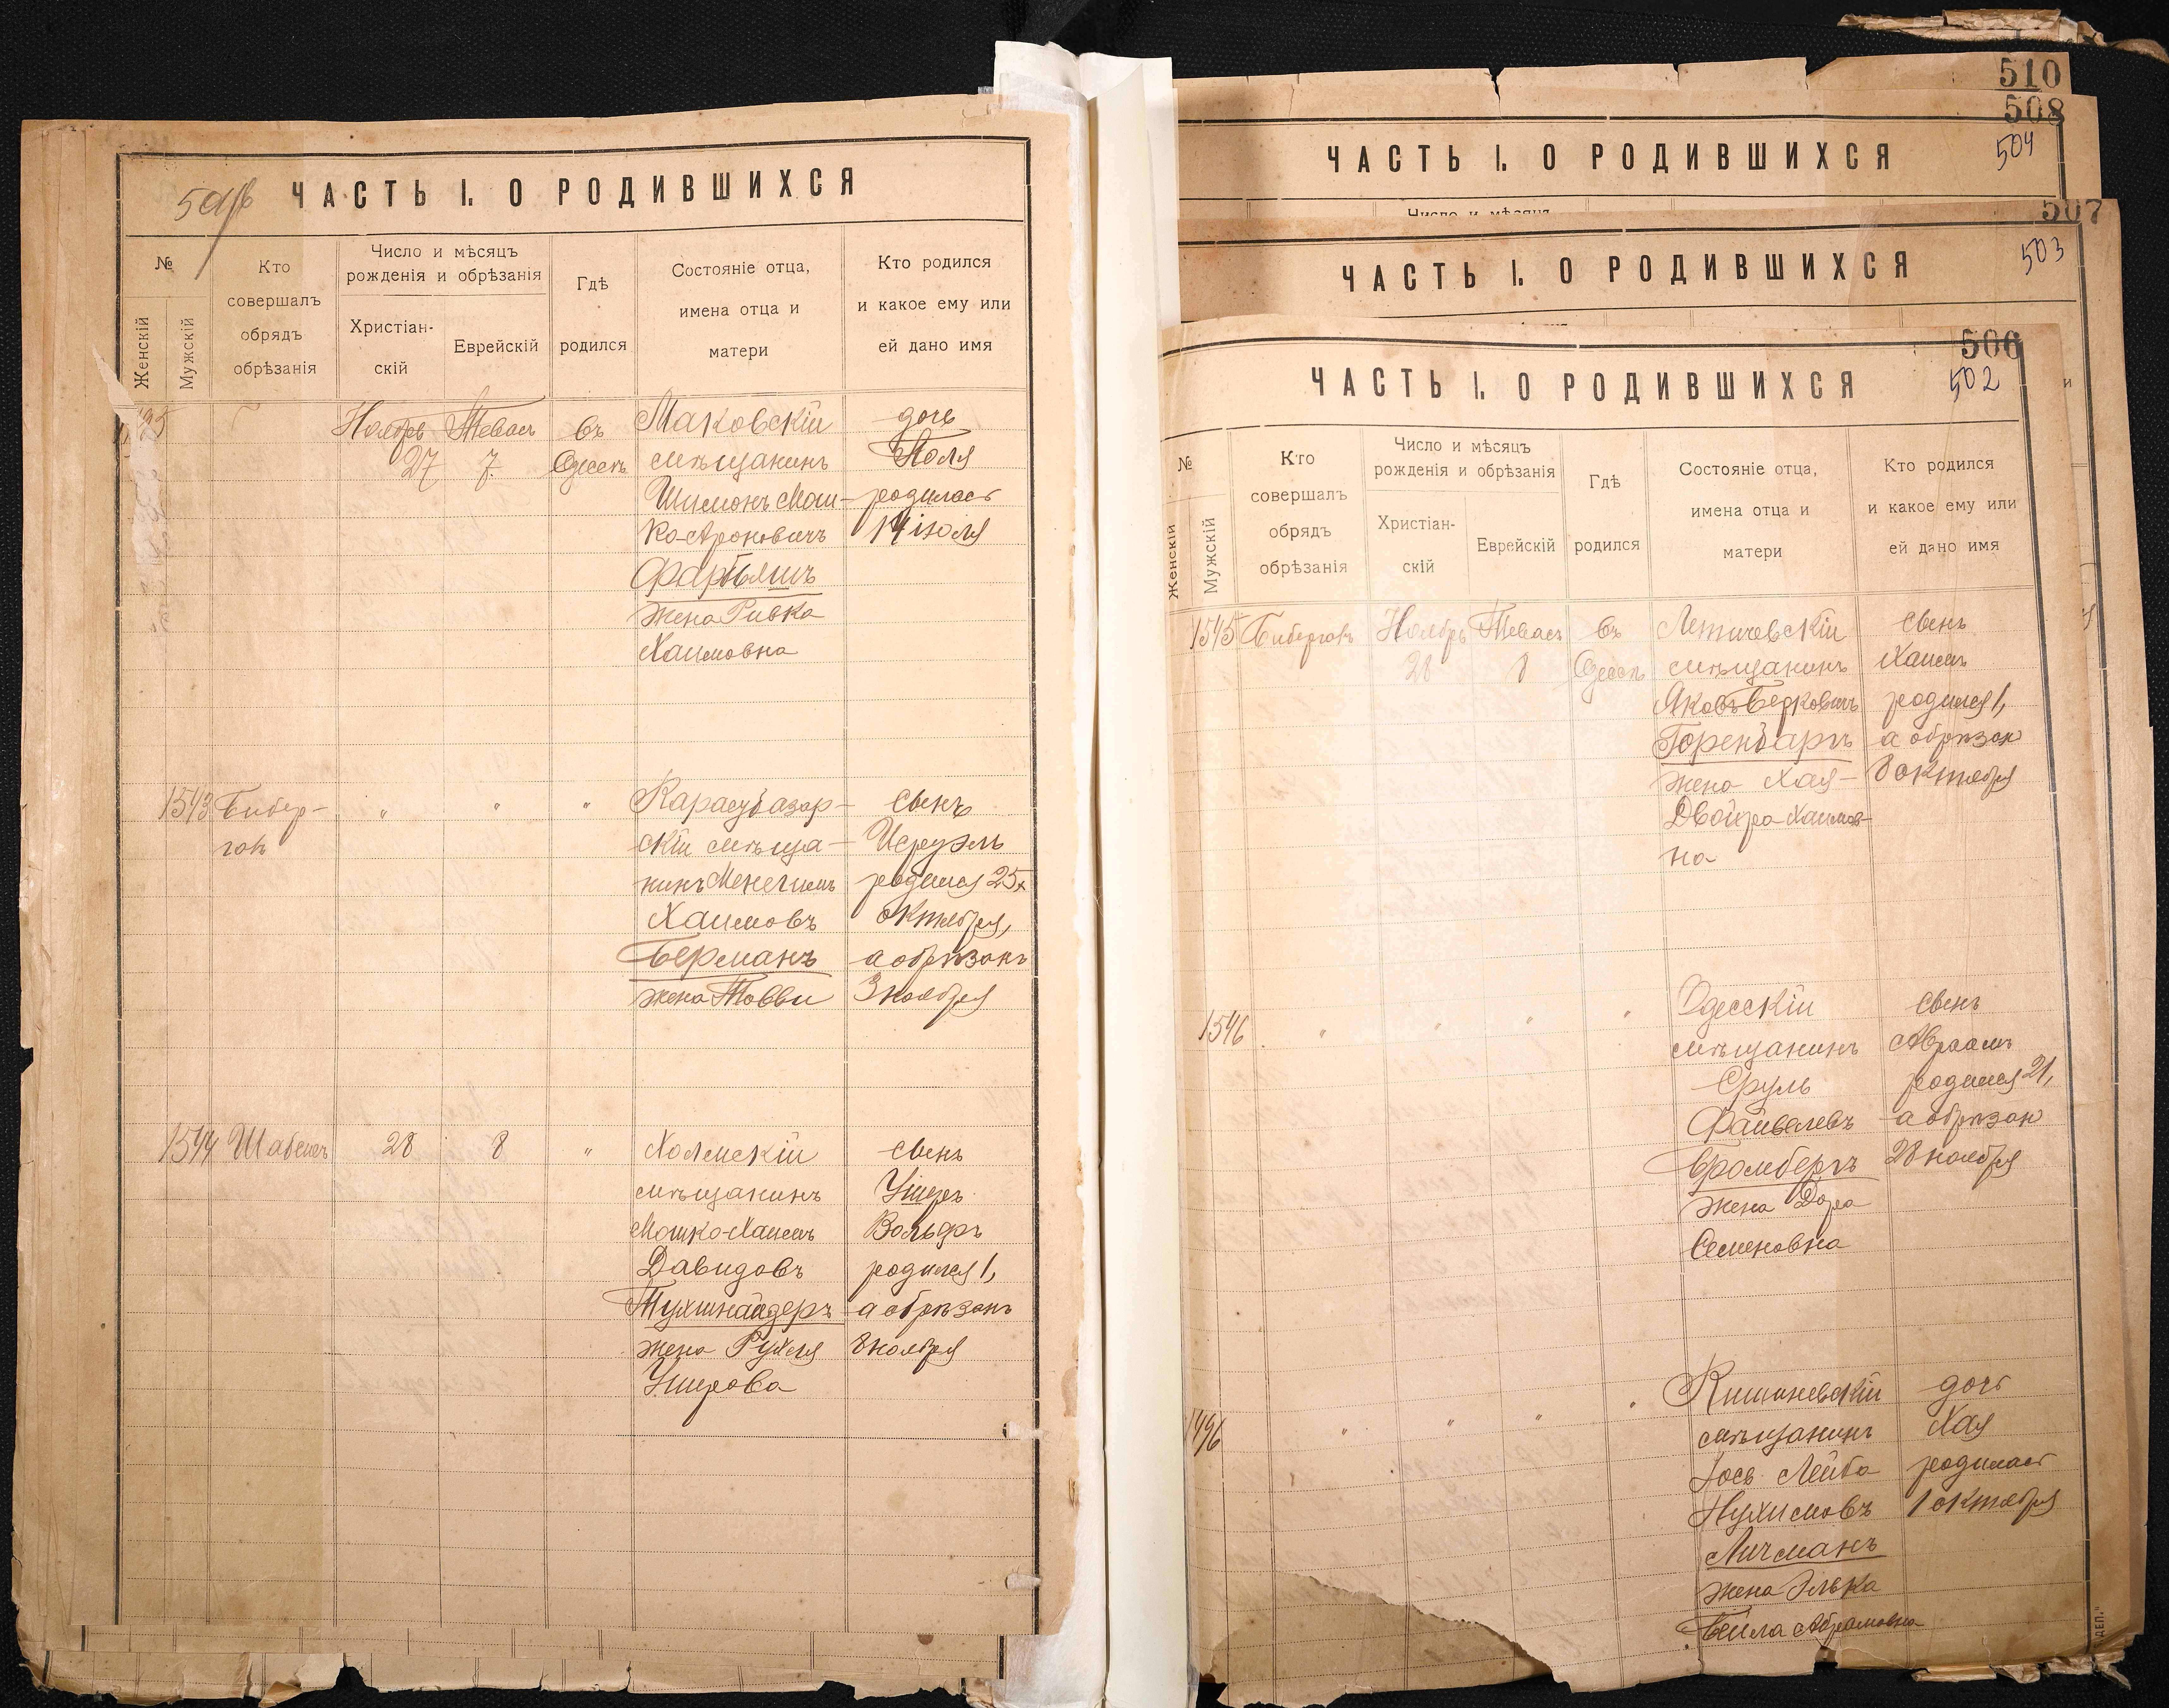 501об
ЧАСТЬ I. О РОДИВШИХСЯ
№
Женскій
Мужскій
Кто
совершалъ
обрядъ
обрѣзанія
Число и мѣсяцъ
рожденія и обрѣзанія
Христіан-
скій
Еврейскій
Гдѣ
родился
Состояніе отца,
имена отца и
матери
Кто родился
и какое ему или
ей дано имя
Ноябрь
27
Тевасъ
7
въ
Одессѣ
Маковскій
мѣщанинъ
Шимонъ Маш-
ко-Ароновичъ
жена Ривка
Хаимовна
дочь
Поля
родилась
14 іюля
1543
Бибер-
гонъ
"
"
"
Карасубазар-
скій мѣща-
нинъ Менехимъ
Хаимовъ
Берманъ
жена Товви
сынъ
Исруэль
родился 25
октября,
а обрѣзанъ
3 ноября
1544
28
8
"
Холмскій
мѣщанинъ
Мошко-Хаимъ
Давидовъ
Тухшнайдеръ
жена Рухля
Ушерова
сынъ
Ушеръ
Вольфъ
родился 1,
а обрѣзанъ
8 ноября
510
508
504
ЧАСТЬ I. О РОДИВШИХСЯ
Число и мѣсяцъ
507
503
ЧАСТЬ I. О РОДИВШИХСЯ
506
502
ЧАСТЬ I. О РОДИВШИХСЯ
№
Женскій
Мужскій
Кто
совершалъ
обрядъ
обрѣзанія
Число и мѣсяцъ
рожденія и обрѣзанія
Христіан-
скій
Еврейскій
Гдѣ
родился
Состояніе отца,
имена отца и
матери
Кто родился
и какое ему или
ей дано имя
1545
Бибергонъ
Ноябрь
28
Тевасъ
8
въ
Одессѣ
Летичевскій
мѣщанинъ
Яковъ Берковичъ
Горенбаргъ
жена Хая-
Двойра Хаимов-
на
сынъ
Хаимъ
родился 1,
а обрѣзан
8 октября
1546
"
"
"
"
Одесскій
мѣщанинъ
Сруль
Файвелевъ
Бромбергъ
жена Дора
Семеновна
сынъ
Авраамъ
родился 21,
а обрѣзан
28 ноября
1496
"
"
"
"
Кишиневскій
мѣщанинъ
Іось Лейба
Нухимовъ
Личманъ
жена Элька
Бейла Абрамовна
дочь
Хая
родилась
1 октября